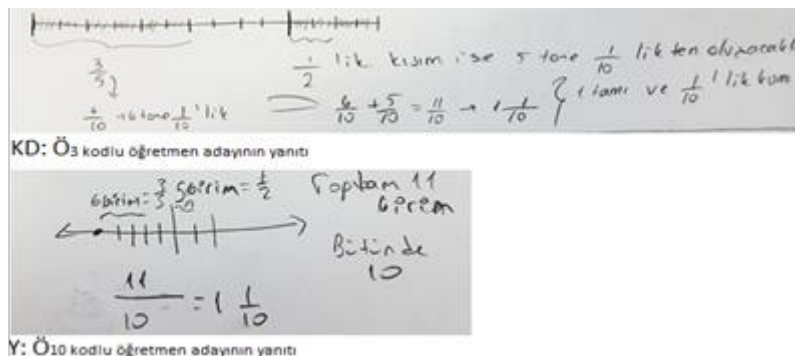 3/5
6/10 → 6 tane 1/10'lik
1/2 lik kısım ise 5 tane 1/10 likten oluşacaktı
6/10 + 5/10 = 11/10 → 1 1/10 } 1 tamı ve 1/10'lik
KD: Ö3 kodlu öğretmen adayının yanıtı
6 birim = 3/5 5 birim = 1/2
Toplam 11 birim
Bütünde 10
11/10 = 1 1/10
Y: Ö10 kodlu öğretmen adayının yanıtı